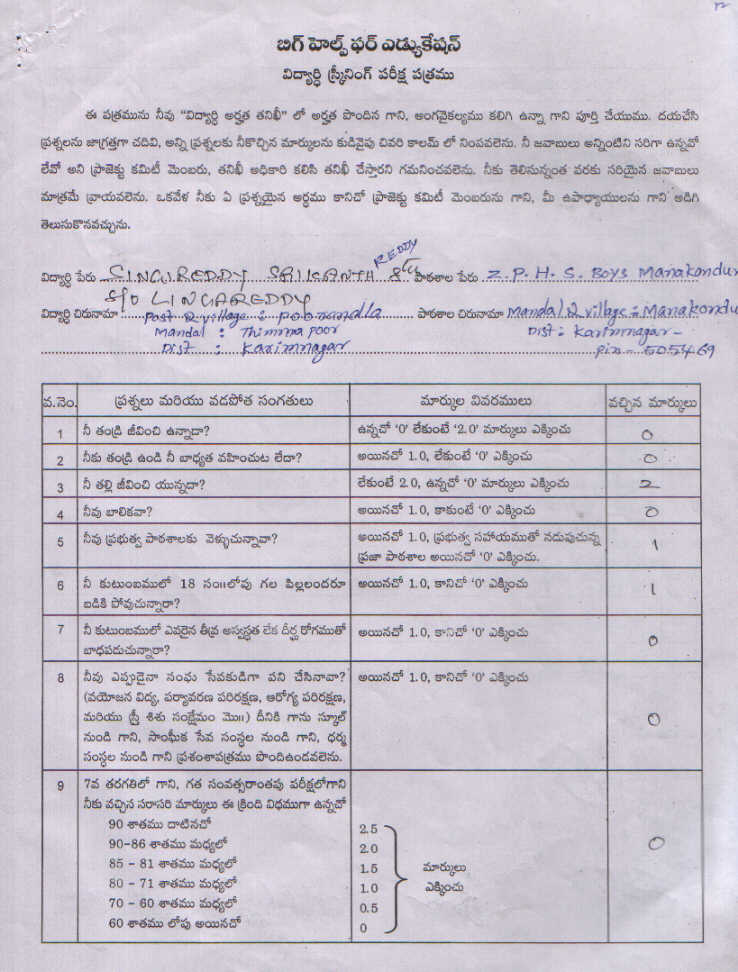 బిగ్ హెల్ప్ ఫర్ ఎడ్యుకేషన్
విద్యార్ధి స్క్రీనింగ్ పరీక్ష పత్రము
ఈ పత్రమును నీవు "విద్యార్ధి అర్హత తనిఖీ" లో అర్హత పొందిన గాని, అంగవైకల్యము కలిగి ఉన్నా గాని పూర్తి చేయుము. దయచేసి
ప్రశ్నలను జాగ్రత్తగా చదివి, అన్ని ప్రశ్నలకు నీకొచ్చిన మార్కులను కుడివైపు చివరి కాలమ్ లో నింపవలెను. నీ జవాబులు అన్నింటిని సరిగా ఉన్నవో
లేవో అని ప్రాజెక్టు కమిటీ మెంబరు, తనిఖీ అధికారి కలిసి తనిఖీ చేస్తారని గమనించవలెను. నీకు తెలిసున్నంత వరకు సరియైన జవాబులు
మాత్రమే వ్రాయవలెను. ఒకవేళ నీకు ఏ ప్రశ్నయైన అర్ధము కానిచో ప్రాజెక్టు కమిటీ మెంబరును గాని, మీ ఉపాధ్యాయులను గాని అడిగి
తెలుసుకొనవచ్చును.
విద్యార్ధి పేరు SINGIREDDY SAIKANTH REDDY 8th పాఠశాల పేరు Z.P.H.S. Boys Manakondur
S/O LINGAREDDY
విద్యార్ధి చిరునామా Post & village : Poranandla పాఠశాల చిరునామా Mandal & village : Manakondu
Mandal : Thimma poor Dist : Karimnagar-
Dist : Karimnagar Pin - 505469
వ.నెం. ప్రశ్నలు మరియు వడపోత సంగతులు మార్కుల వివరములు వచ్చిన మార్కులు
1 నీ తండ్రి జీవించి ఉన్నాడా? ఉన్నచో '0' లేకుంటే '2.0' మార్కులు ఎక్కించు 0
2 నీకు తండ్రి ఉండి నీ బాధ్యత వహించుట లేదా? అయినచో 1.0, లేకుంటే '0' ఎక్కించు 0
3 నీ తల్లి జీవించి యున్నదా? లేకుంటే 2.0, ఉన్నచో '0' మార్కులు ఎక్కించు 2
4 నీవు బాలికవా? అయినచో 1.0, కాకుంటే '0' ఎక్కించు 0
5 నీవు ప్రభుత్వ పాఠశాలకు వెళ్ళుచున్నావా? అయినచో 1.0, ప్రభుత్వ సహాయముతో నడుపుచున్న 1
ప్రజా పాఠశాల అయినచో '0' ఎక్కించు.
6 నీ కుటుంబములో 18 సం॥లోపు గల పిల్లలందరూ అయినచో 1.0, కానిచో '0' ఎక్కించు 1
బడికి పోవుచున్నారా?
7 నీ కుటుంబములో ఎవరైన తీవ్ర అస్వస్థత లేక దీర్ఘ రోగముతో అయినచో 1.0, కానిచో '0' ఎక్కించు 0
బాధపడుచున్నారా?
8 నీవు ఎప్పుడైనా సంఘ సేవకుడిగా పని చేసినావా? అయినచో 1.0, కానిచో '0' ఎక్కించు
(వయోజన విద్య, పర్యావరణ పరిరక్షణ, ఆరోగ్య పరిరక్షణ,
మరియు స్త్రీ శిశు సంక్షేమం మొ॥) దీనికి గాను స్కూల్ 0
నుండి గాని, సాంఘీక సేవ సంస్థల నుండి గాని, ధర్మ
సంస్థల నుండి గాని ప్రశంశాపత్రము పొందిఉండవలెను.
9 7వ తరగతిలో గాని, గత సంవత్సరాంతపు పరీక్షలోగాని
నీకు వచ్చిన సరాసరి మార్కులు ఈ క్రింది విధముగా ఉన్నచో
90 శాతము దాటినచో 2.5
90-86 శాతము మధ్యలో 2.0 0
85 - 81 శాతము మధ్యలో 1.5 మార్కులు
80 - 71 శాతము మధ్యలో 1.0 ఎక్కించు
70 - 60 శాతము మధ్యలో 0.5
60 శాతము లోపు అయినచో 0